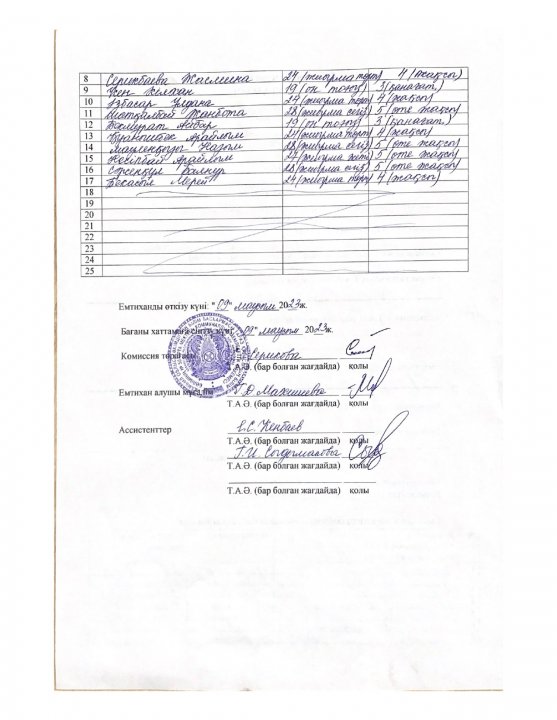 8 Серикбаева Жасмина 24 (жиырма төрт) 4 (жақсы)
9 19 (он тоғыз) 3 (қанағат.)
10 Ізбасар Ұлдана 24 (жиырма төрт) 4 (жақсы)
11 Жанбота 28 (жиырма сегіз) 5 (өте жақсы)
12 19 (он тоғыз) 3 (қанағат.)
13 Арайлым 24 (жиырма төрт) 4 (жақсы)
14 Назым 28 (жиырма сегіз) 5 (өте жақсы)
15 Арайлым 27 (жиырма жеті) 5 (өте жақсы)
16 28 (жиырма сегіз) 5 (өте жақсы)
17 Мерей 24 (жиырма төрт) 4 (жақсы)
18
19
20
21
22
23
24
25
Емтиханды өткізу күні: "09" маусым 2023ж.
Бағаны хаттамаға енгізу күні: "09" маусым 2023ж.
Комиссия төрағасы Серикова
Т.А.Ә. (бар болған жағдайда) қолы
Емтихан алушы мұғалім
Т.А.Ә. (бар болған жағдайда) қолы
Ассистенттер Е.С. Кенбаев
Т.А.Ә. (бар болған жағдайда) қолы
Г.И.
Т.А.Ә. (бар болған жағдайда) қолы
Т.А.Ә. (бар болған жағдайда) қолы